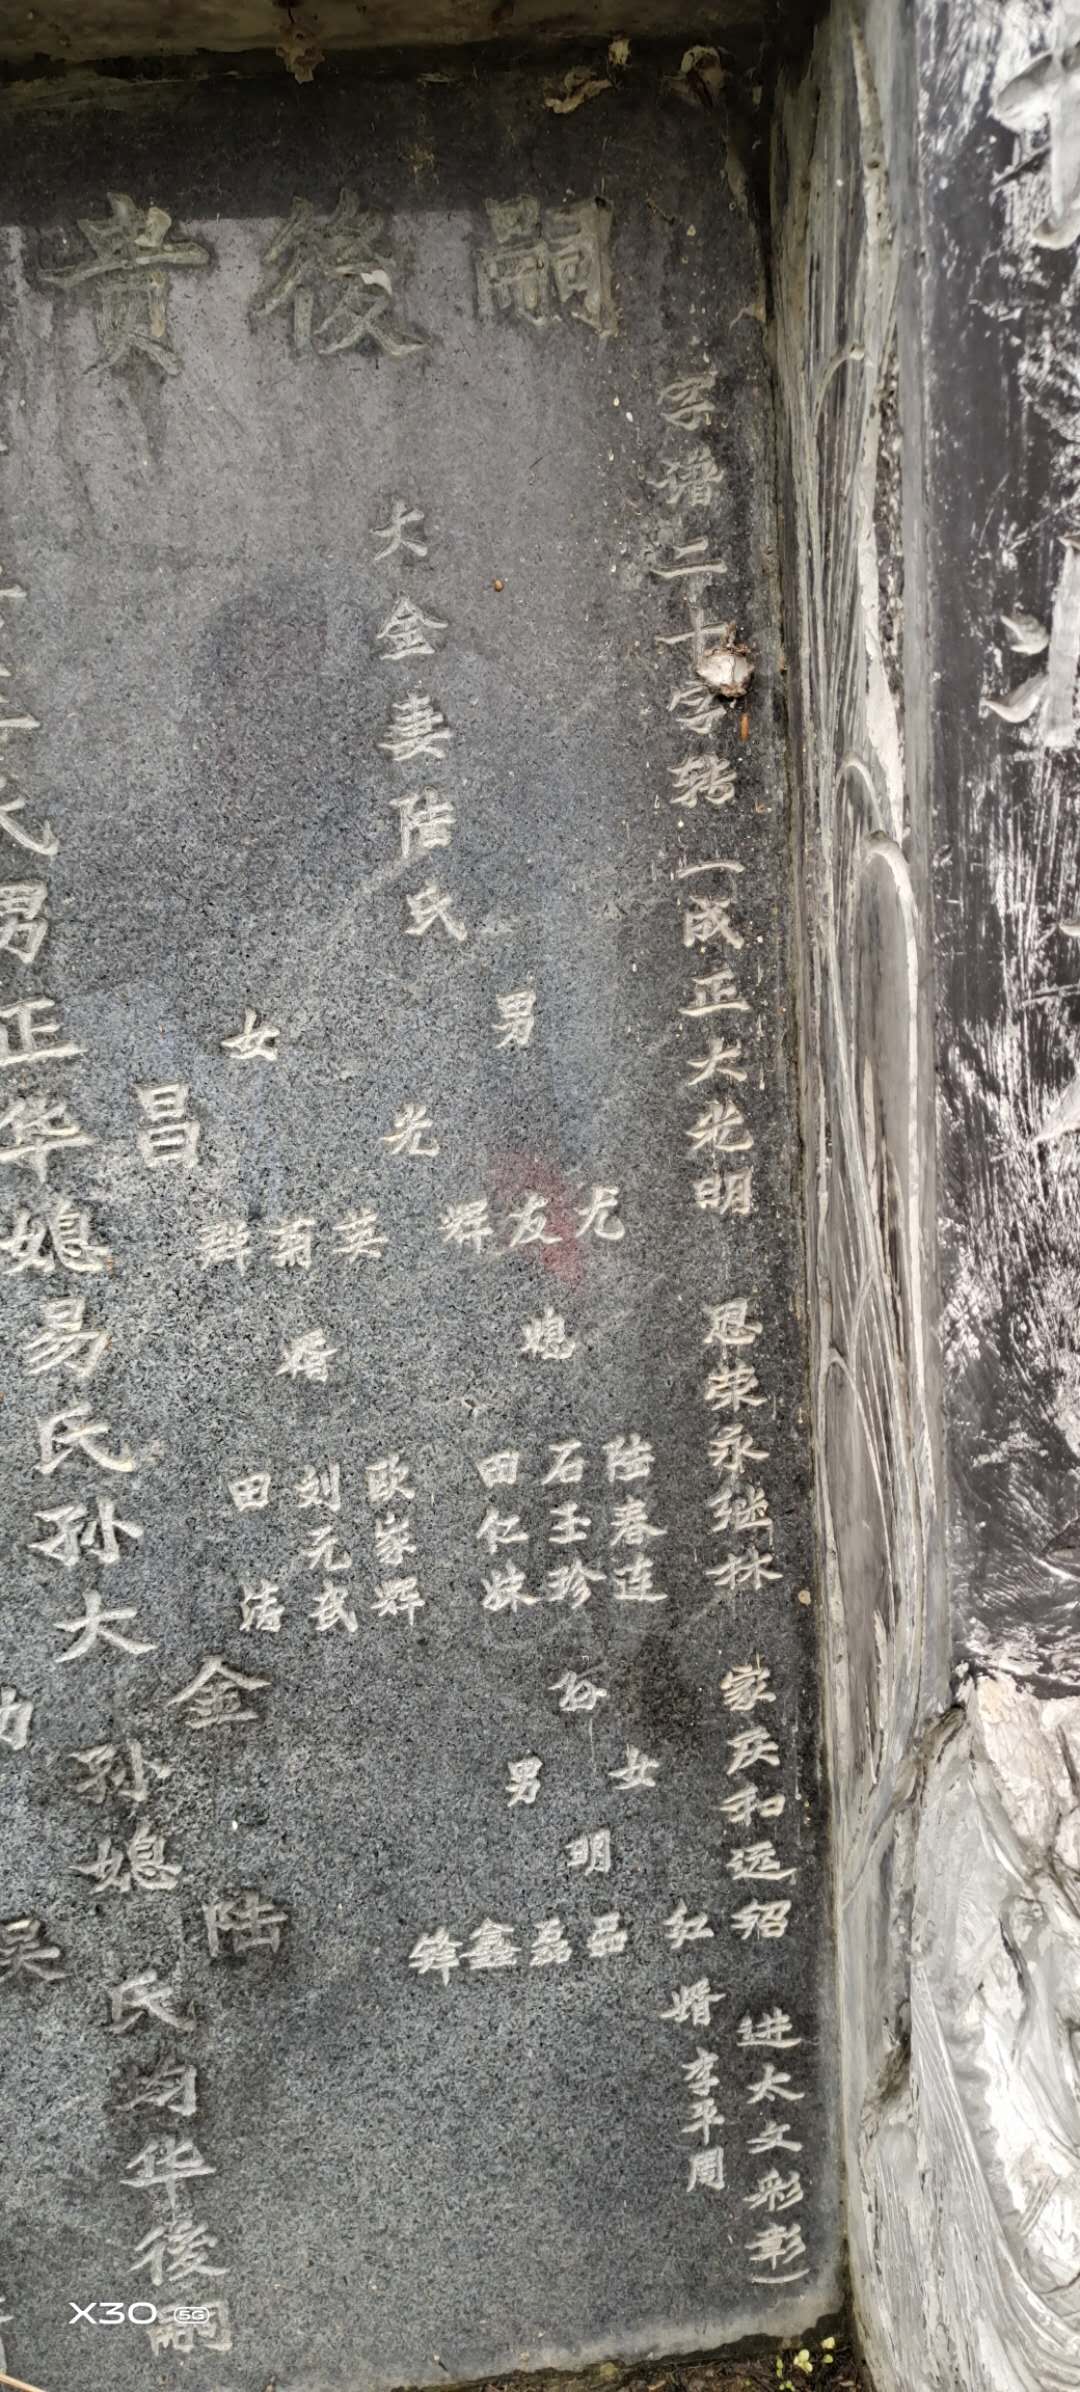 嗣後贵
字谱二十字转（成正大光明 恩荣永继林 家庆和远绍 进太文彩彰）
大金妻陆氏
男
光
尤
发
辉
媳
陆春连
石玉珍
田仁妹
孙
女
男
明
红 婚 李平周
品
磊
鑫
锋
女
英
菊
群
婿
欧家辉
刘元武
田涛
昌
金
陆
氏男正华媳易氏孙大
孙媳
氏均华後嗣
吴
X30 5G